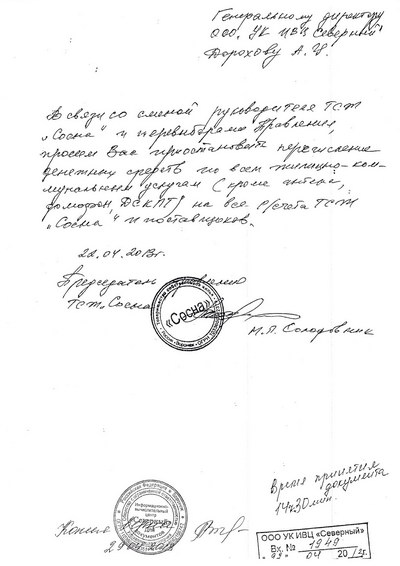 Генеральному директору
ООО "УК ИВЦ Северный"
Дорохову А.И.
В связи со сменой руководителя ТСЖ
"Сосна" и перевыборами Правления,
просим Вас приостановить перечисление
денежных средств по всем жилищно-ком-
мунальным услугам (кроме антенн,
домофон, ДСКПТ) на все р/счета ТСЖ
"Сосна" и поставщиков.
22.04.2013г.
Председатель правления
ТСЖ "Сосна"
«Сосна»
М.П. Солодовник
Время принятия
документа
14ч30мин.
Информационно
вычислительный
центр
Северный
документов
Копия
ООО УК ИВЦ «Северный»
Вх. № 1949
04 20